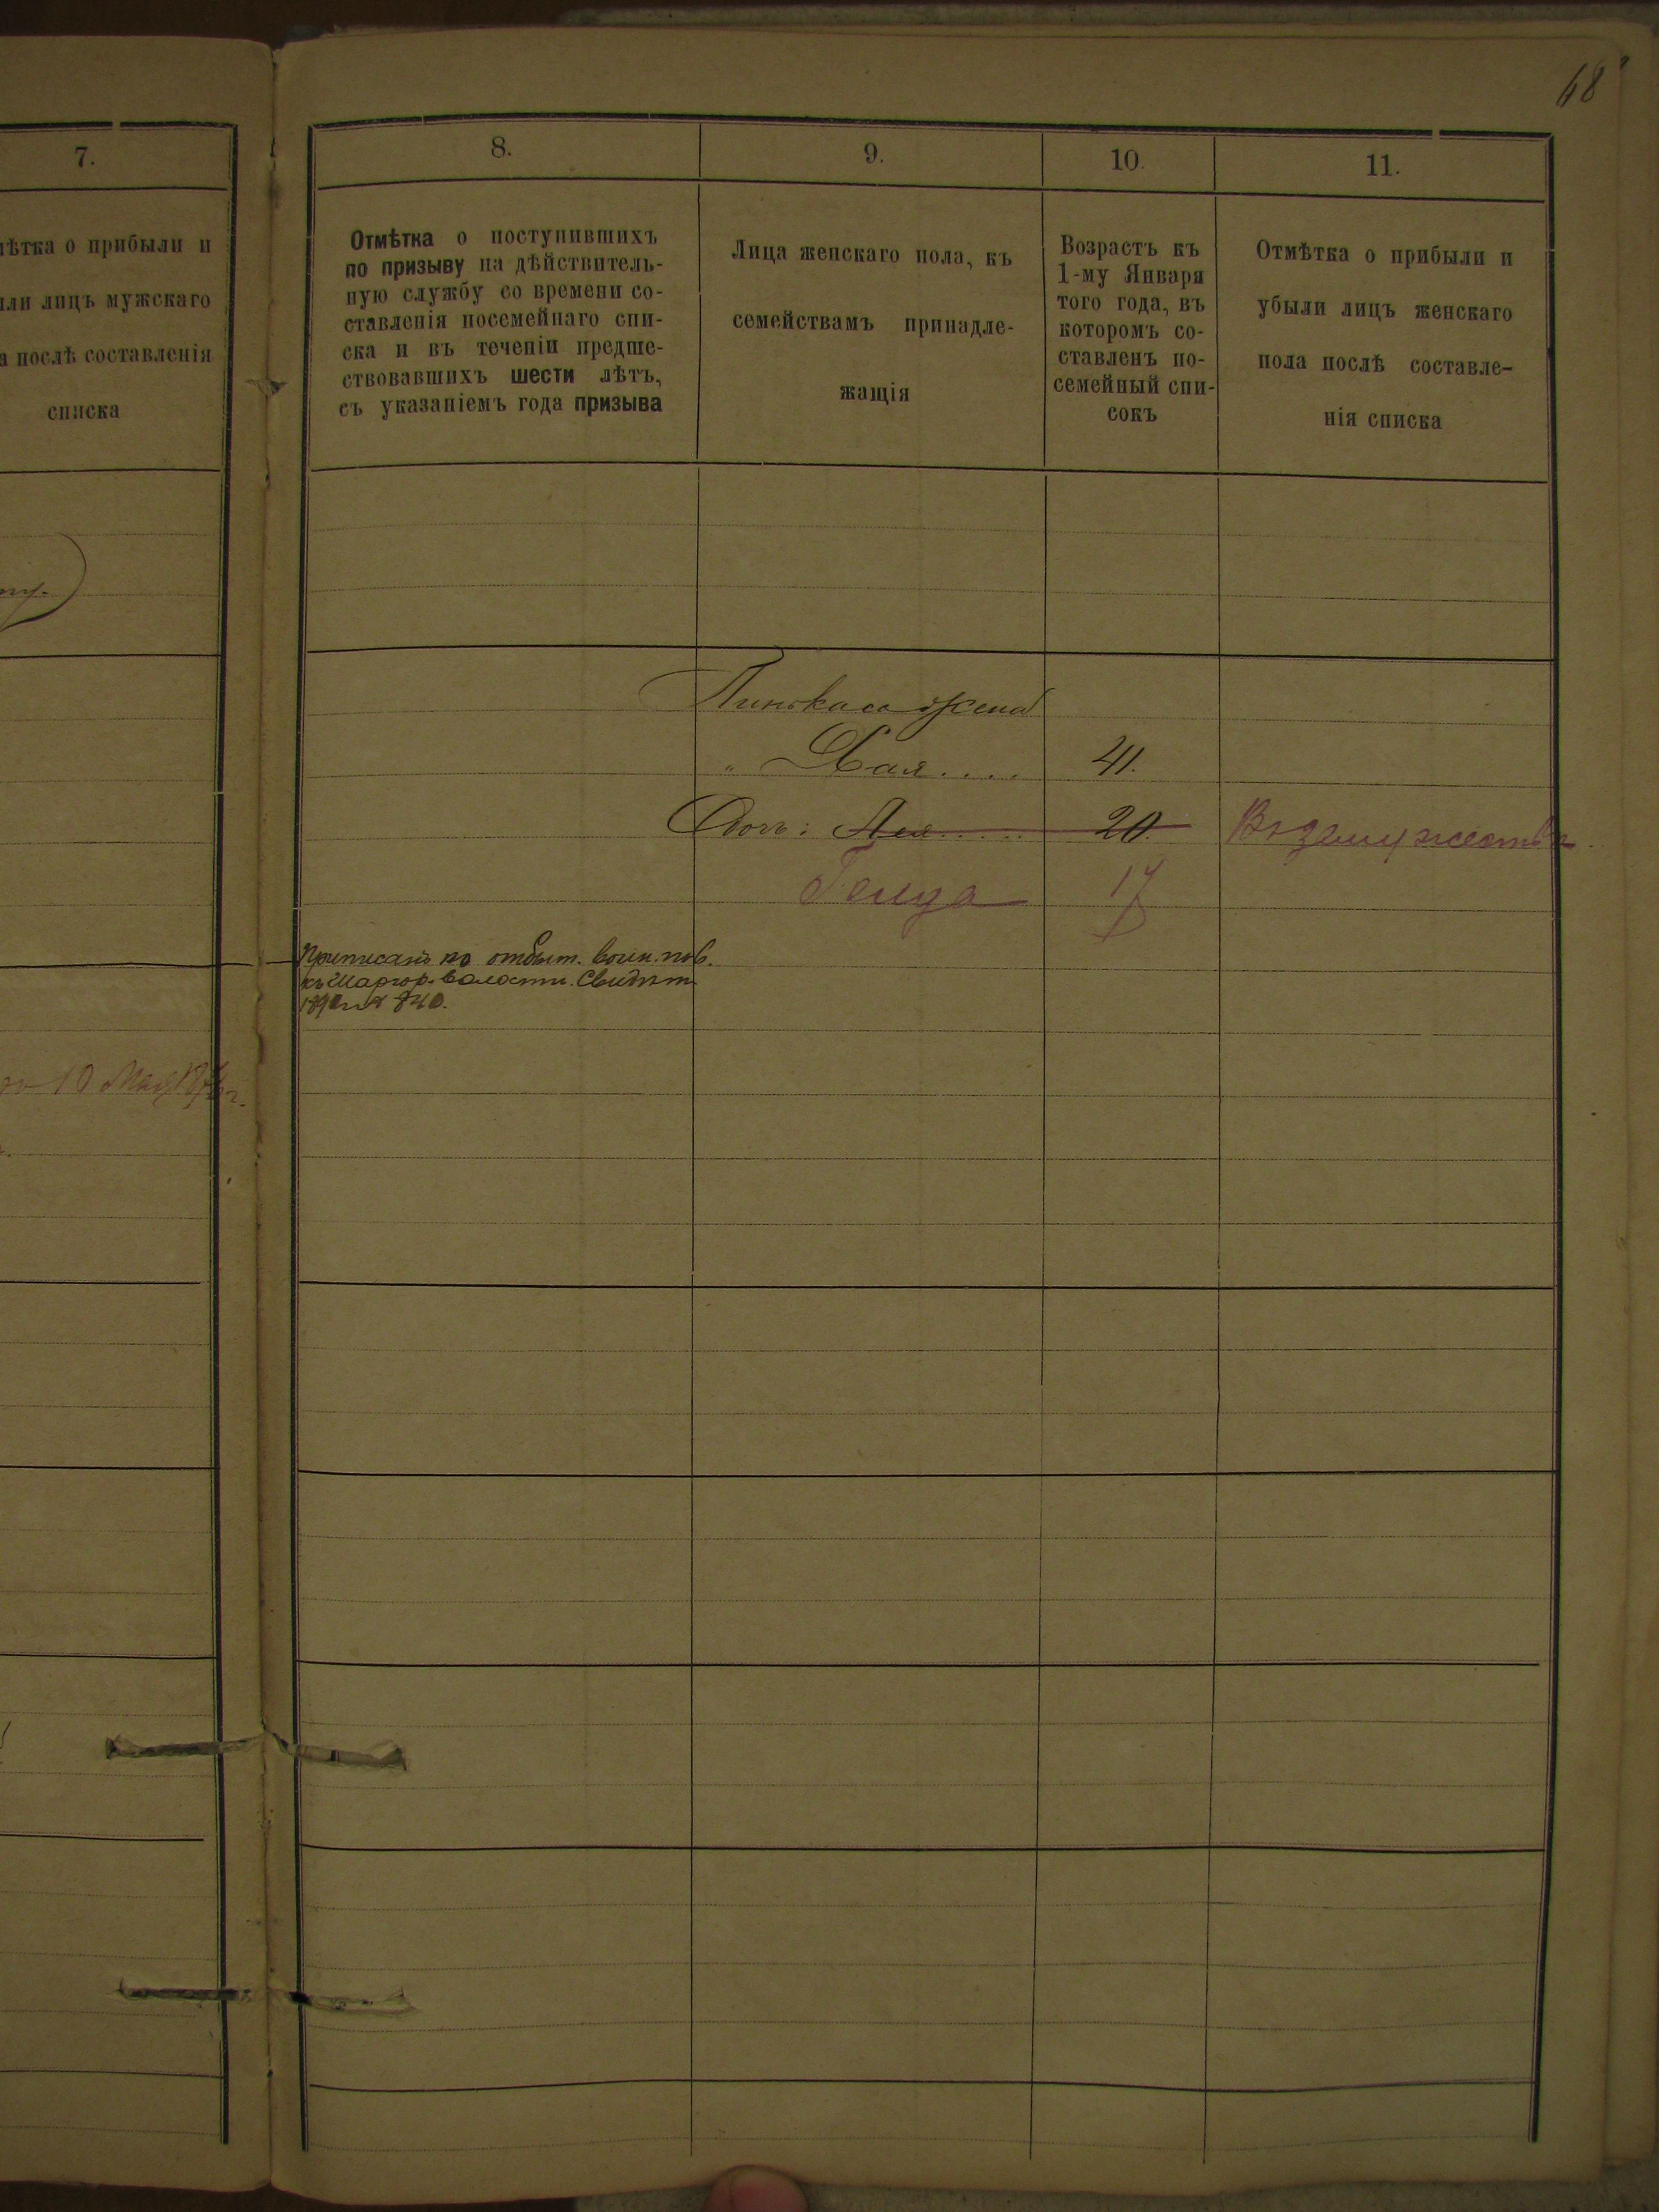 68
7.
ѣтка о прибыли и
ли лицъ мужскаго
а послѣ составленія
списка
10 Мая
8.
Отмѣтка о поступившихъ
по призыву на дѣйствитель-
ную службу со времени со-
ставленія посемейнаго спи-
ска и въ теченіи предше-
ствовавшихъ шести лѣтъ,
съ указаніемъ года призыва
9.
Лица женскаго пола, къ
семействамъ принадле-
жащія
10.
Возрастъ къ
1-му Января
того года, въ
которомъ со-
ставленъ по-
семейный спи-
сокъ
11.
Отмѣтка о прибыли и
убыли лицъ женскаго
пола послѣ составле-
нія списка
Пинькаса жена
" Хая.... 41.
Доч: 20. Въ замужествѣ
17
Приписанъ по отбыт. воин. пов.
къ Шаргор. волости. Свидѣт
840.